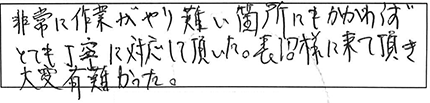 非常に作業がやり難い箇所にもかかわらず
とても丁寧に対応して頂いた。長沼様に来て頂き
大変有難かった。